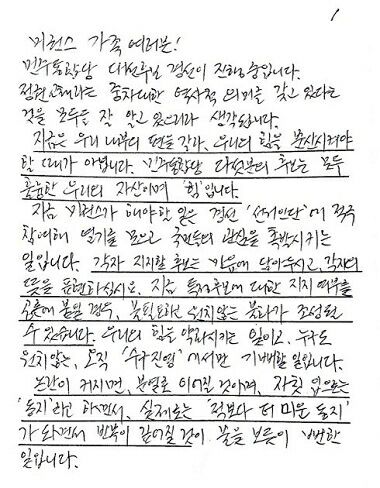 1
미권스 가족 여러분!
민주통합당 대선후보 경선이 진행중입니다.
정권교체라는 중차대한 역사적 의미를 갖고 있다는
것을 모두들 잘 알고 있으리라 생각됩니다.
지금은 우리 내부의 편을 갈라, 우리의 힘을 분산시켜야
할 때가 아닙니다. 민주통합당 다섯분의 후보는 모두
훌륭한 우리의 자산이며 '힘'입니다.
지금 미권스가 해야할 일은 경선 '선거인단'에 적극
참여해 열기를 모으고 국민들의 관심을 촉발시키는
일입니다. 각자 지지할 후보는 마음에 담아두시고, 각자의
뜻을 표현하십시요. 지금 특정후보에 대한 지지 여부를
공론에 붙일 경우, 불필요하고 원치않는 불화가 조성될
수 있습니다. 우리의 힘을 약화시키는 일이고, 누구도
원치않는, 오직 '수구진영'에서만 기뻐할 일입니다.
논란이 커지면, 분열로 이어질 것이며, 자칫 입으로는
'동지'라고 하면서, 실제로는 '적보다 더 미운 동지'
가 되면서 반목이 깊어질 것이 불을 보듯이 뻔한
일입니다.